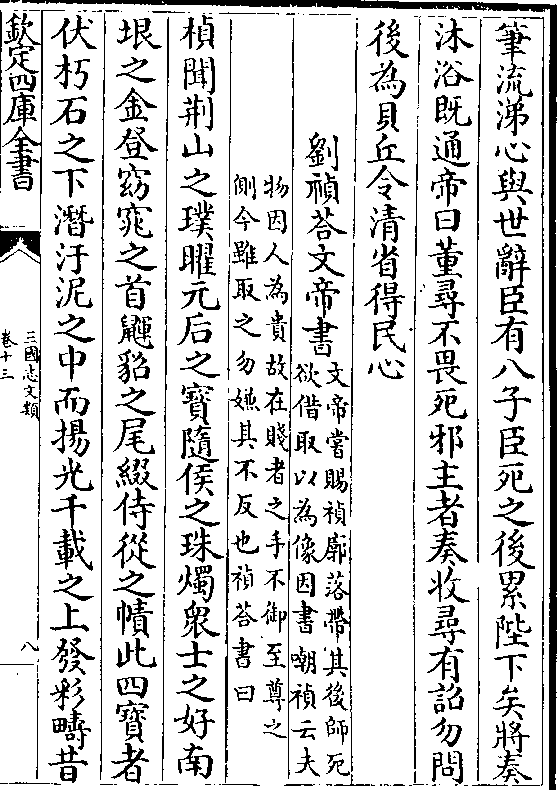 筆流涕心與世辭臣有八子臣死之後累陛下矣將奏
沐浴既通帝曰董尋不畏死邪主者奏收尋有詔勿問
後為貝丘令清省得民心
劉禎荅文帝書
文帝嘗賜禎廓落帶其後師死
欲借取以為像因書嘲禎云夫
物因人為貴故在賤者之手不御至尊之
側今雖取之勿嫌其不反也禎荅書曰
楨聞荆山之璞曜元后之寳隨侯之珠燭衆士之好南
垠之金登窈窕之首鼲貂之尾綴侍從之幘此四寳者
伏朽石之下潛汙泥之中而揚光千載之上發彩疇昔
欽定四庫全書
三國志文類
卷十三
八